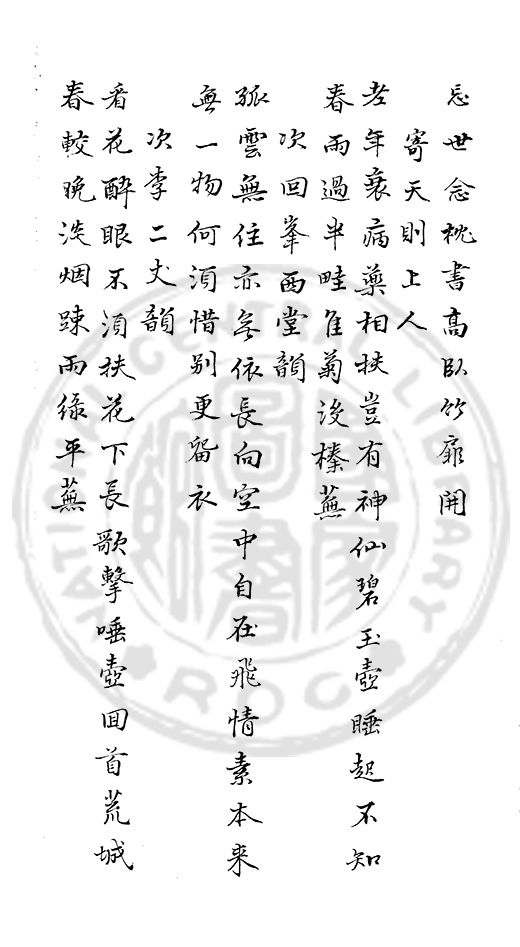 忘世念枕書高臥竹扉開
寄天則上人
老年衰病藥相扶豈有神仙碧玉壺睡起不知
春雨過半畦隹菊沒榛蕪
次回峯西堂韻
孤雲無住亦無依長向空中自在飛情素本来
無一物何須惜别更留衣
次李二丈韻
看花醉眼不須扶花下長歌擊唾壺回首荒城
春較晚淡烟踈雨綠平蕪
NATIONAL CENTRAL LIBRARY
ROC